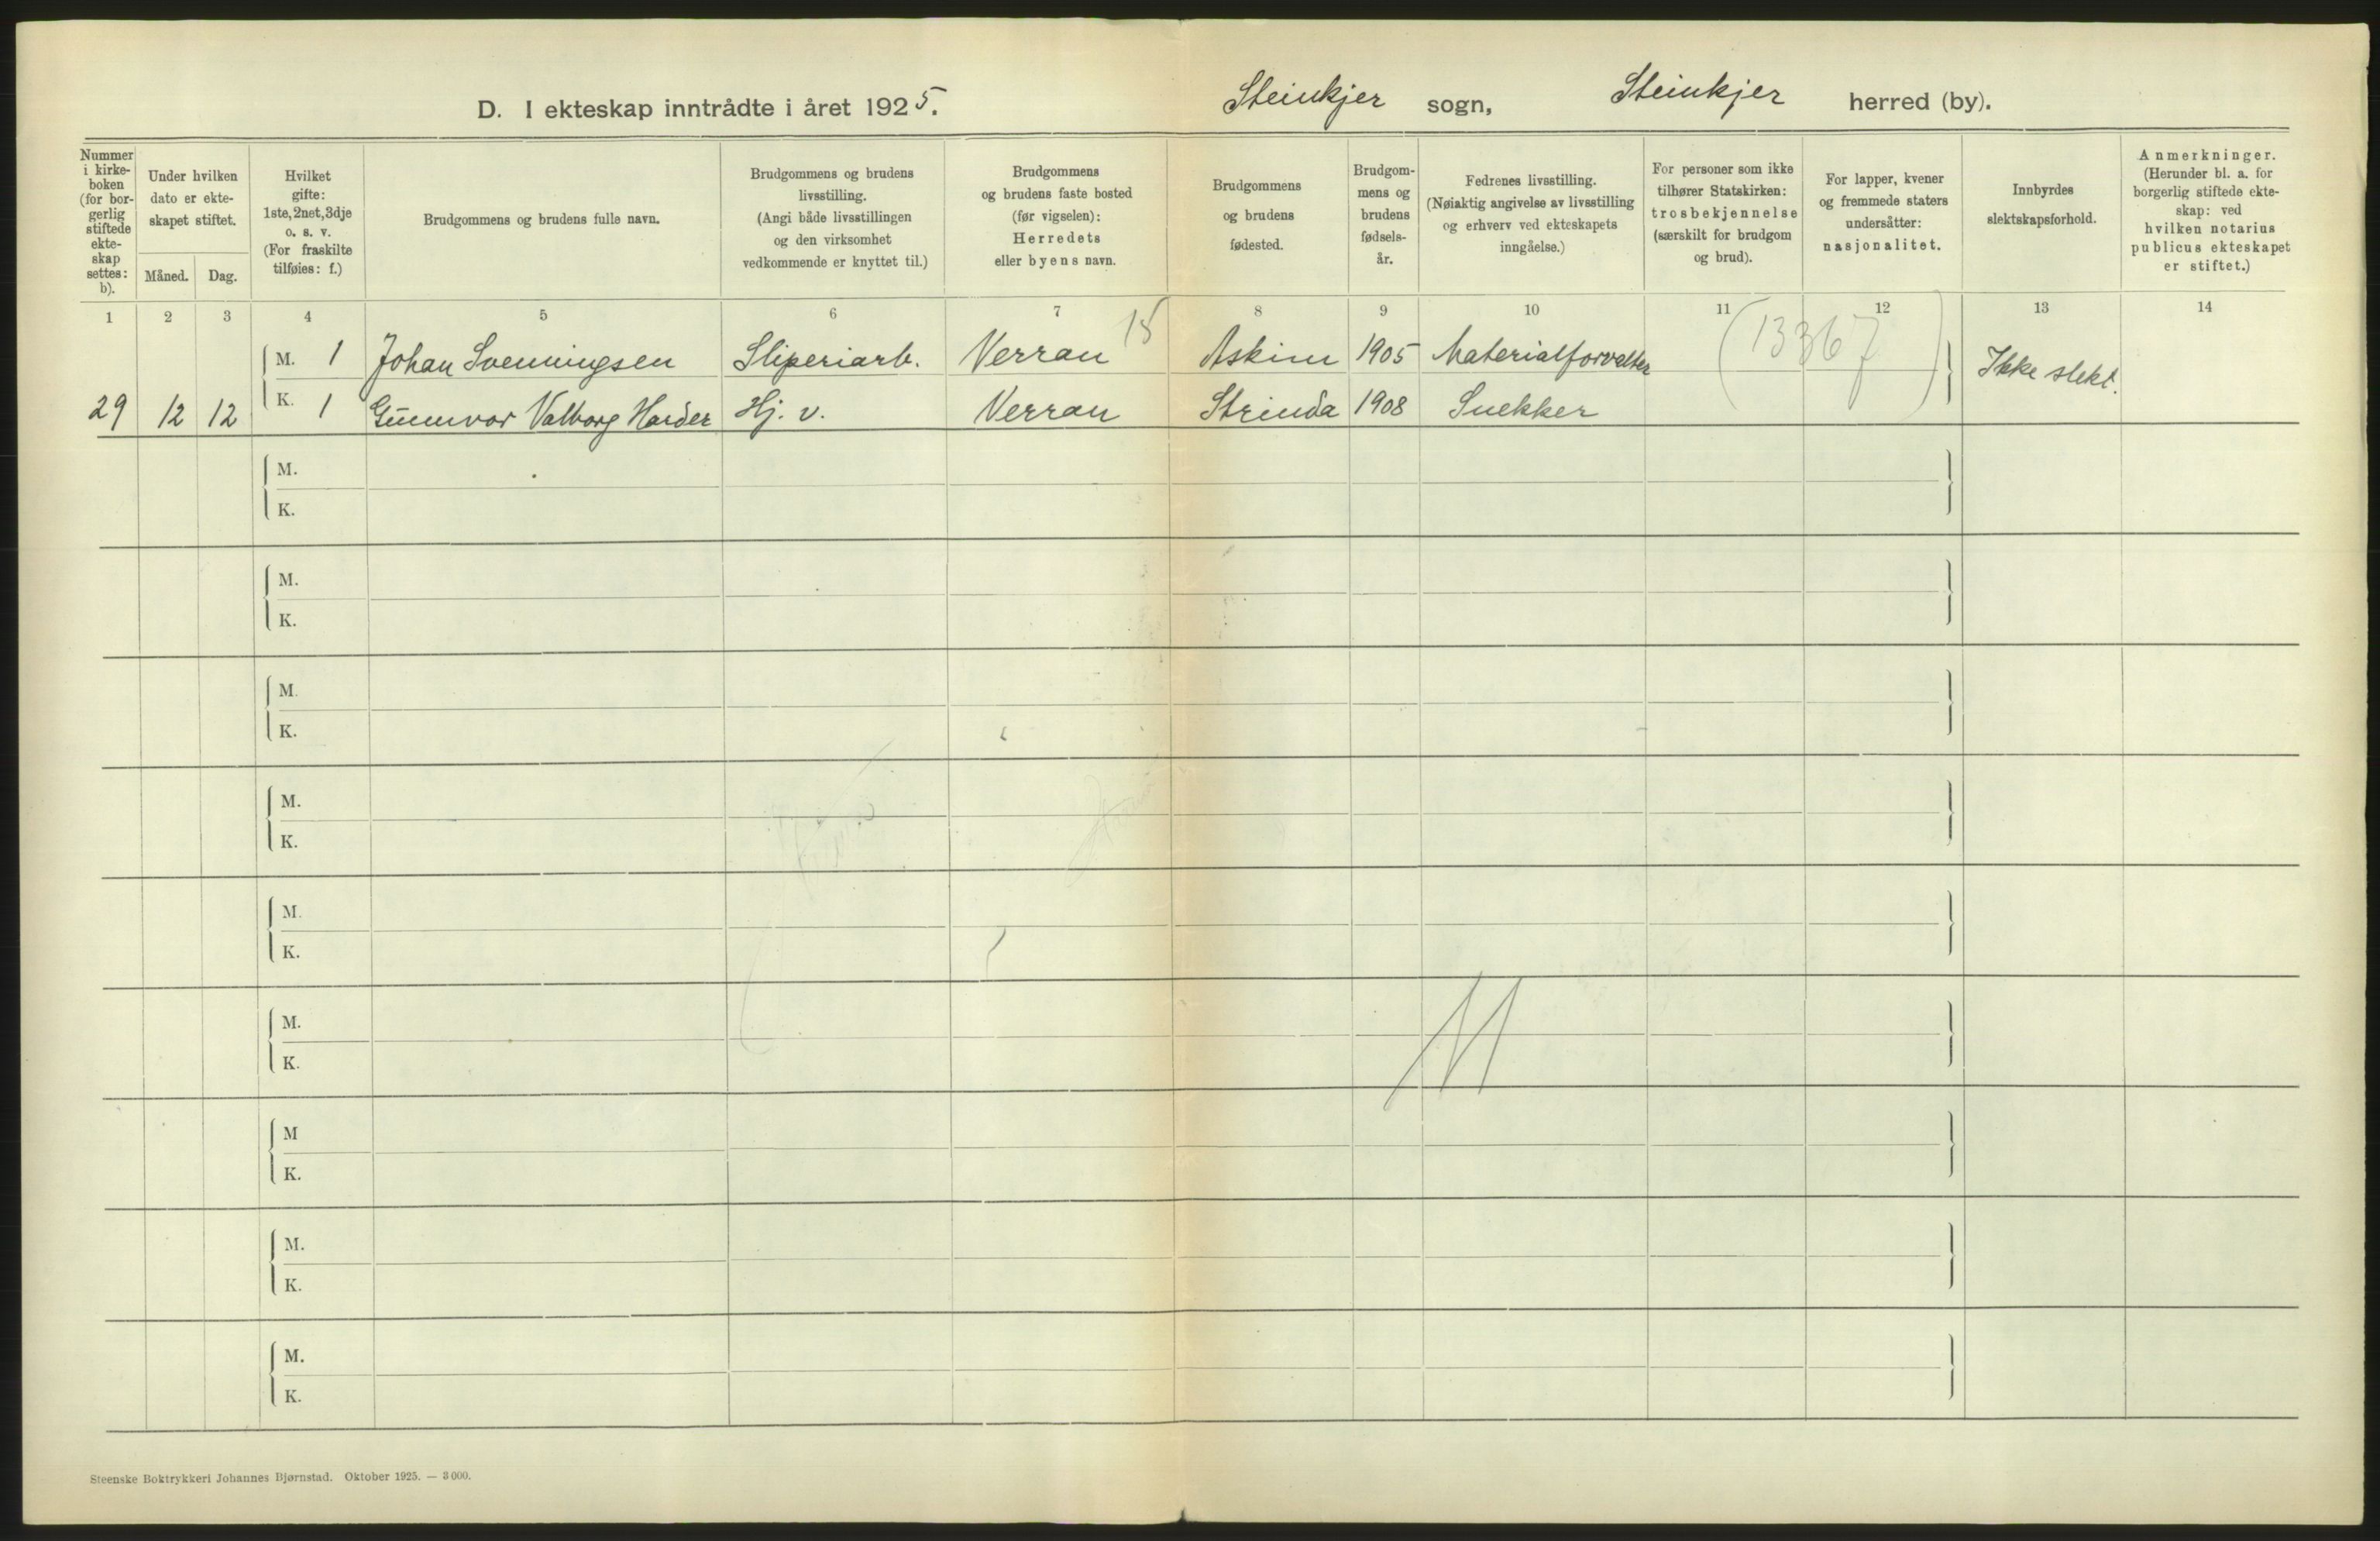 D. I ekteskap inntrådte i året 1925. Steinkjer sogn, Steinkjer herred (by).
Nummer
i kirke-
boken
(for bor-
gerlig
stiftede
ekte-
skap
settes:
b).
Under hvilken
dato er ekte-
skapet stiftet.
Måned. Dag.
Hvilket
gifte:
1ste, 2net, 3dje
o. s. v.
(For fraskilte
tilføies: f.)
Brudgommens og brudens fulle navn.
Brudgommens og brudens
livsstilling.
(Angi både livsstillingen
og den virksomhet
vedkommende er knyttet til.)
Brudgommens
og brudens faste bosted
(før vigselen):
Herredets
eller byens navn.
Brudgommens
og brudens
fødested.
Brudgom-
mens og
brudens
fødsels-
år.
Fedrenes livsstilling.
(Nøiaktig angivelse av livsstilling
og erhverv ved ekteskapets
inngåelse.)
For personer som ikke
tilhører Statskirken:
trosbekjennelse
(særskilt for brudgom
og brud).
For lapper, kvener
og fremmede staters
undersåtter:
nasjonalitet.
Innbyrdes
slektskapsforhold.
Anmerkninger.
(Herunder bl. a. for
borgerlig stiftede ekte-
skap: ved
hvilken notarius
publicus ekteskapet
er stiftet.)
1 2 3 4 5 6 7 8 9 10 11 12 13 14
15 (13367)
M. 1 Johan Svenningsen Sliperiarb. Verran Askim 1905 Materialforvalter Ikke slekt.
29 12 12 K. 1 Gunnvor Valborg Harder Hj. v. Verran Strinda 1908 Snekker
M.
K.
M.
K.
M.
K.
M.
K.
M.
K.
M.
K.
M
K.
M.
K.
M.
K.
Steenske Boktrykkeri Johannes Bjørnstad. Oktober 1925. — 3 000.